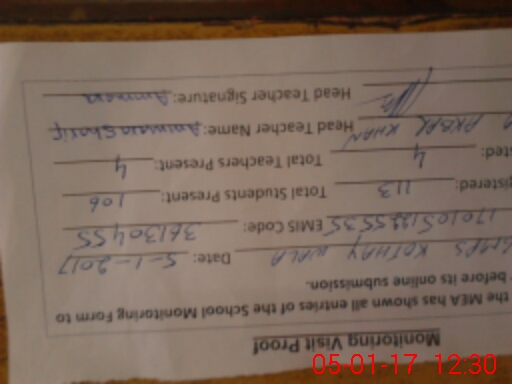 Monitoring Visit Proof
the MEA has shown all entries of the School Monitoring Form to
before its online submission.
GMPS KOTHAY WALA Date: 5-1-2017
EMIS Code: 36130455
gistered: 113 Total Students Present: 106
ted: 4 Total Teachers Present: 4
AKBAR KHAN Head Teacher Name:
Head Teacher Signature:
05-01-17 12:30